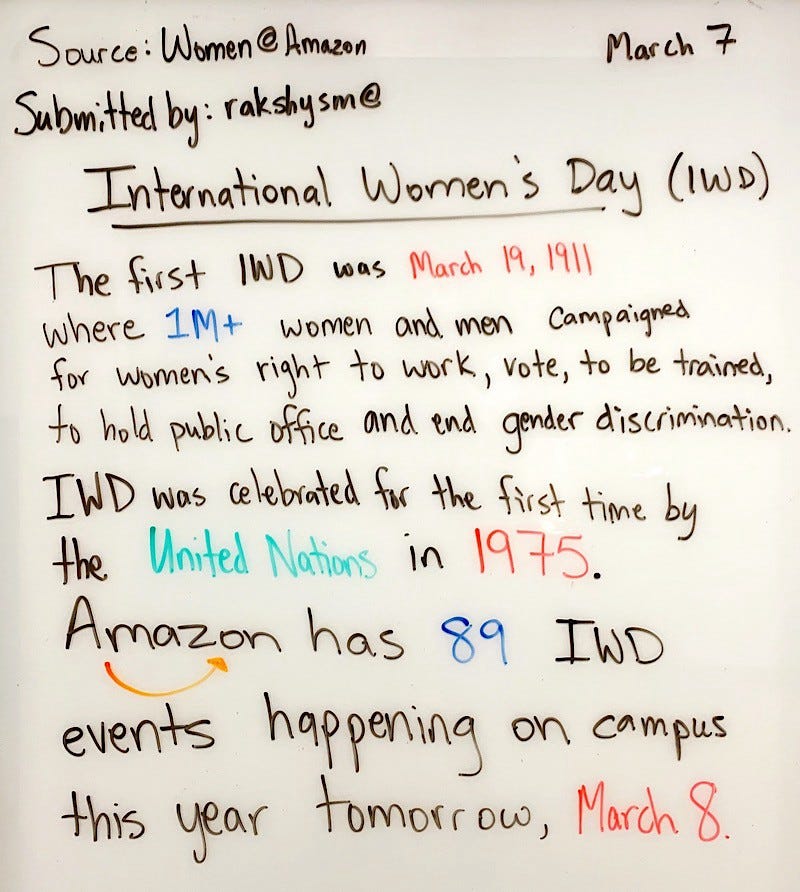 Source: Women@Amazon March 7
Submitted by: rakshysm@
International Women's Day (IWD)
The first IWD was March 19, 1911
where 1M+ women and men campaigned
for women's right to work, vote, to be trained,
to hold public office and end gender discrimination.
IWD was celebrated for the first time by
the United Nations in 1975.
Amazon has 89 IWD
events happening on campus
this year tomorrow, March 8.